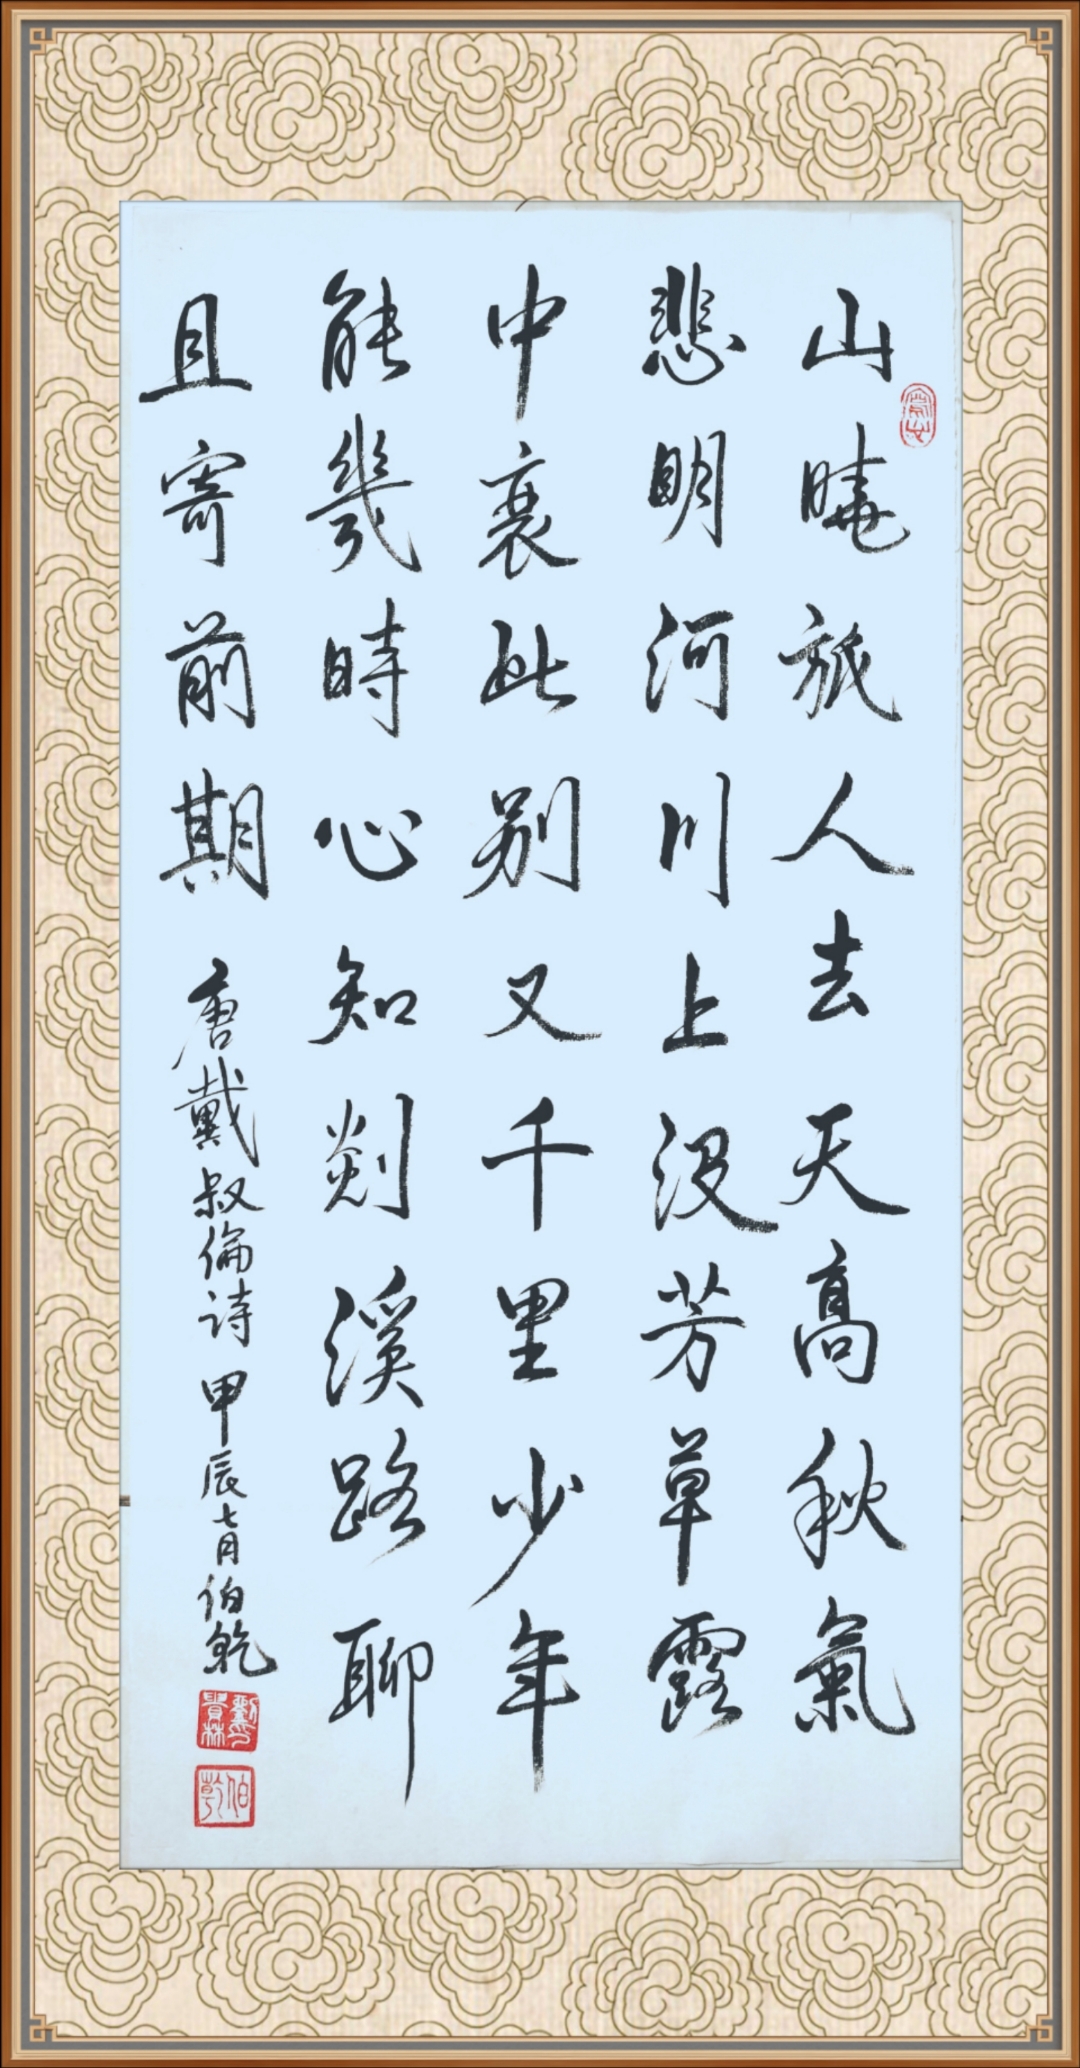 山曉旅人去天高秋氣
悲明河川上沒芳草露
中衰此別又千里少年
能幾時心知剡溪路聊
且寄前期 唐戴叔倫詩 甲辰七月伯乾
伯乾